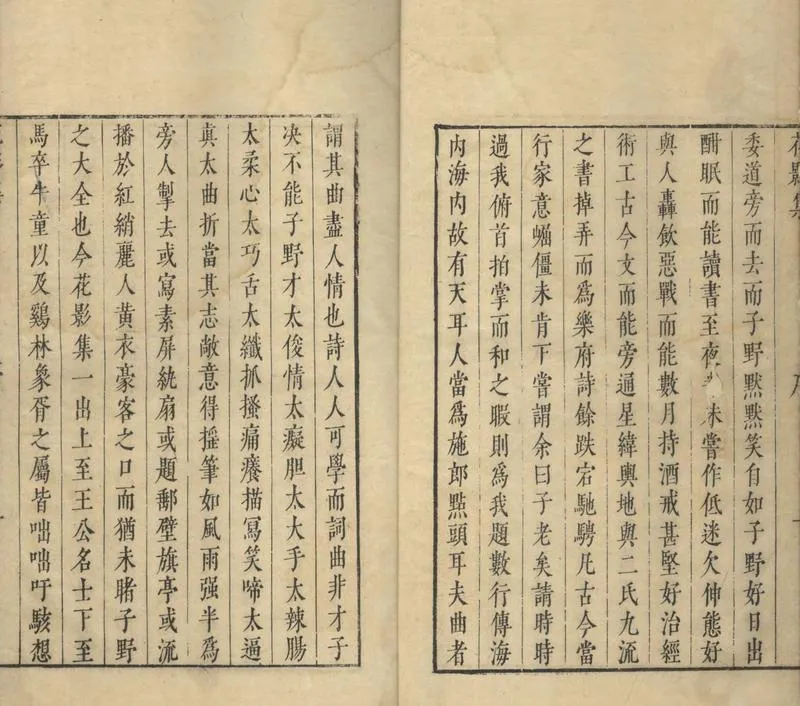 花影集
委道旁而去而子野黙黙笑自如子野好日出
酣眠而能讀書至夜未嘗作低迷欠伸態好
與人轟飲惡戰而能數月持酒戒甚堅好治經
術工古今文而能旁通星緯輿地與二氏九流
之書掉弄而爲樂府詩餘跌宕馳騁凡古今當
行家意崛僵未肯下嘗謂余曰子老矣請時時
過我俯首拍掌而和之暇則爲我題數行傳海
内海内故有天耳人當爲施郎㸃頭耳夫曲者
謂其曲盡人情也詩人人可學而詞曲非才子
决不能子野才太俊情太癡胆太大手太辣腸
太柔心太巧舌太纖抓搔痛癢描寫笑啼太逼
眞太曲折當其志敞意得揺筆如風雨强半爲
旁人掣去或寫素屏紈扇或題郵壁旗亭或流
播於紅綃麗人黃衣豪客之口而猶未睹子野
之大全也今花影集一出上至王公名士下至
馬卒牛童以及鷄林象胥之屬皆咄咄吁駭想